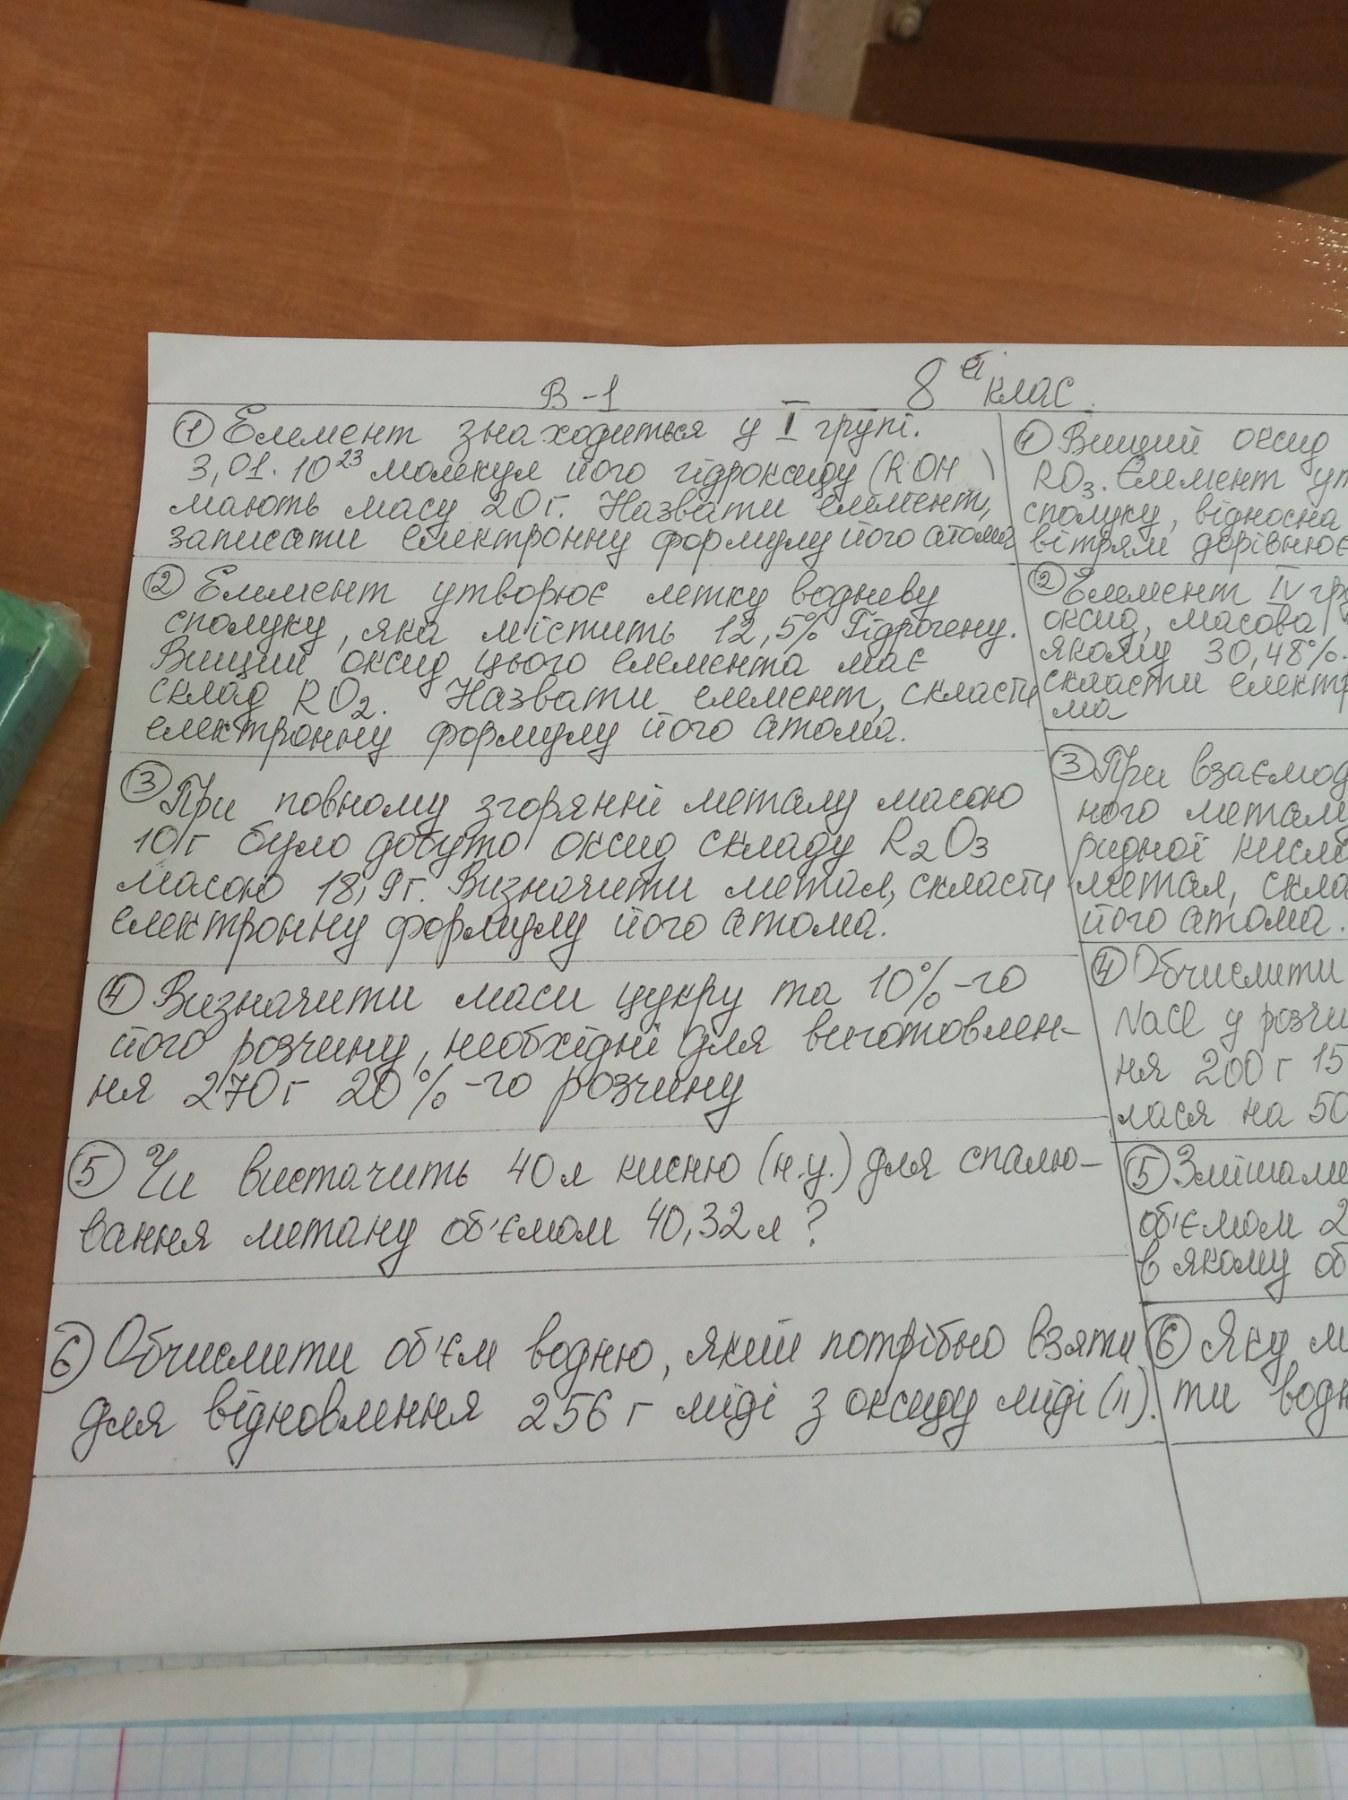 В-1 8й клас
① Елемент знаходиться у I групі.
3,01·10²³ молекул його гідроксиду (ROH)
мають масу 20г. Назвати елемент,
записати електронну формулу його атома
② Елемент утворює летку водневу
сполуку, яка містить 12,5% Гідрогену.
Вищий оксид цього елемента має
склад RO₂. Назвати елемент, скласти
електронну формулу його атома.
③ При повному згорянні металу масою
10г було добуто оксид складу R₂O₃
масою 18,9г. Визначити метал, скласти
електронну формулу його атома.
④ Визначити маси цукру та 10%-го
його розчину, необхідні для виготовлен-
ня 270г 20%-го розчину
⑤ Чи вистачить 40л кисню (н.у.) для спалю-
вання метану об'ємом 40,32л?
⑥ Обчислити об'єм водню, який потрібно взяти
для відновлення 256г міді з оксиду міді(II).
① Вищий оксид
RO₃. Елемент ут
сполуку, відносна
вітрям дорівнює
② Елемент IV гру
оксид, масова
якому 30,48%.
скласти електр
ма
③ При взаємод
ного металу
ридної кисло
метал, скла
його атома.
④ Обчислити
NaCl у розчи
ня 200г 15
лася на 50
⑤ Змішали
об'ємом 2
в якому об
⑥ Яку м
ти водн